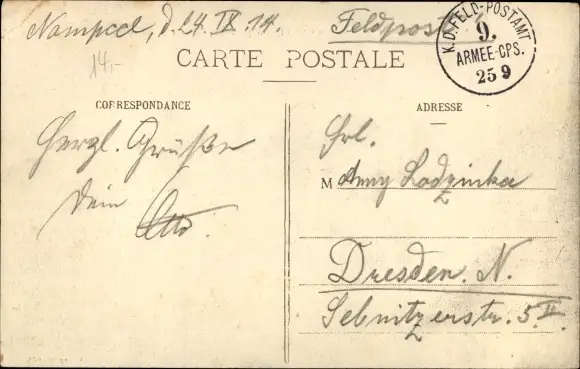 d. 24. IX. 14. Feldpost
14.-
K.D. FELD-POSTAMT
9.
ARMEE-CPS.
25 9
CARTE POSTALE
CORRESPONDANCE
ADRESSE
Herzl. Grüße
Dein
Otto.
Frl.
M Lodzinka
Dresden. N.
Sebnitzerstr. 5 II.